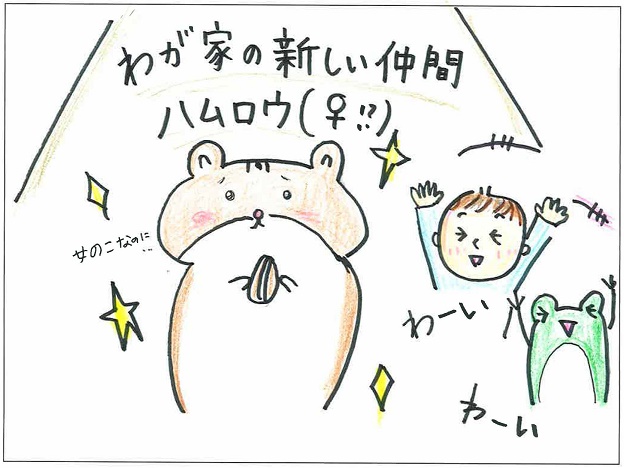 わが家の新しい仲間
ハムロウ(♀!?)
女のこなのに…
わーい
わーい